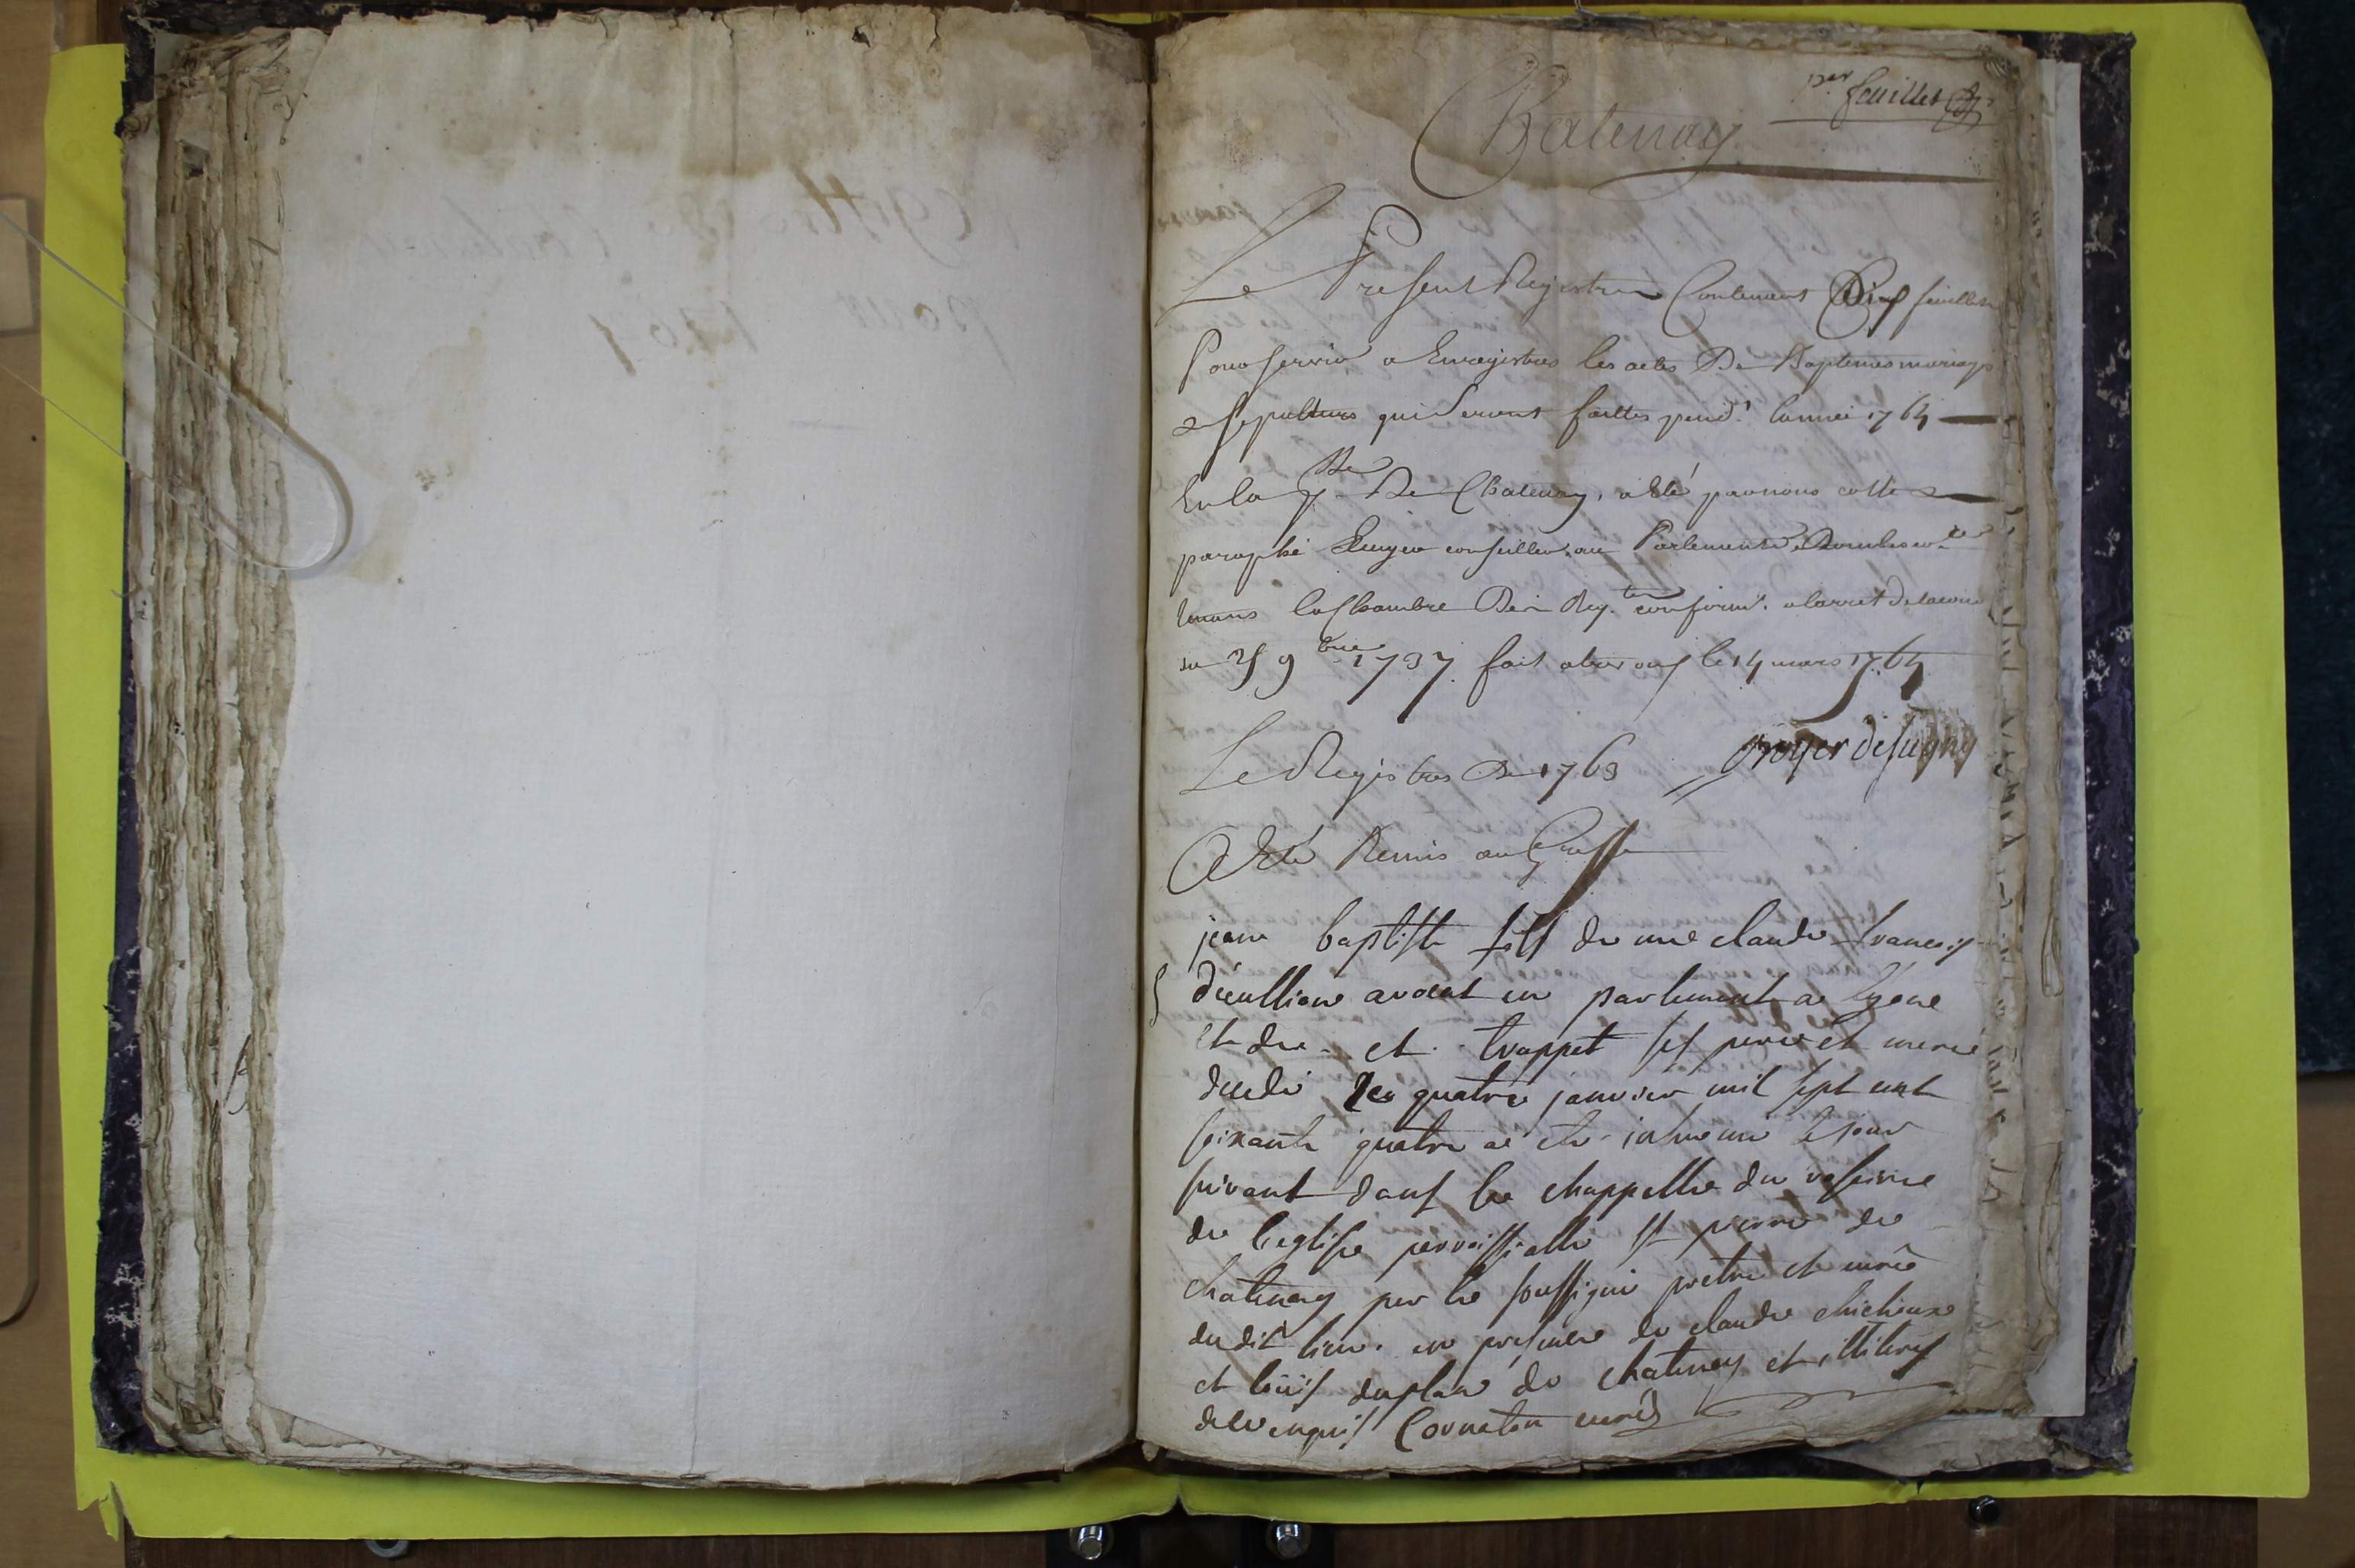 1.er feuillet
Chatenay
Le Present Registre Contenant Cinq feuillets
Pour servir a Enregistrer les actes De Baptemes mariages
& sepultures qui seront faittes pend.t lannée 1764
En la p.sse De Chatenay, a Eté par nous cotté &
paraphé Ecuyer conseiller au Parlement de Dombes
tenans la Chambre Des Req.tes conform.t a larret de la cour
du 9.bre 1737. fait a trevoux le 14 mars 1764
Le Registre De 1763
A Eté Remis au Greffe
jean baptiste fils de me claude francois
avocat en parlement a lyone
et de et trappet ses pere et mere
decede le quatre janvier mil sept cent
soixante quatre a ete inhume le jour
suivant dans la chappelle du rosaire
de leglise parroissialle st pierre de
chatenay par le soussigné pretre et curé
dudit lieu. en presence de claude
et loüis duplan de chatenay et illiterés
de ce enquis Cornaton curé